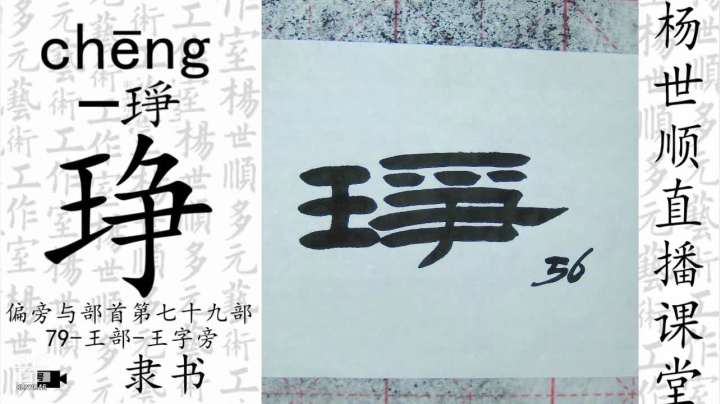 chēng
一琤
琤
偏旁与部首第七十九部
79-王部-王字旁
隶书
琤
56
杨世顺直播课堂